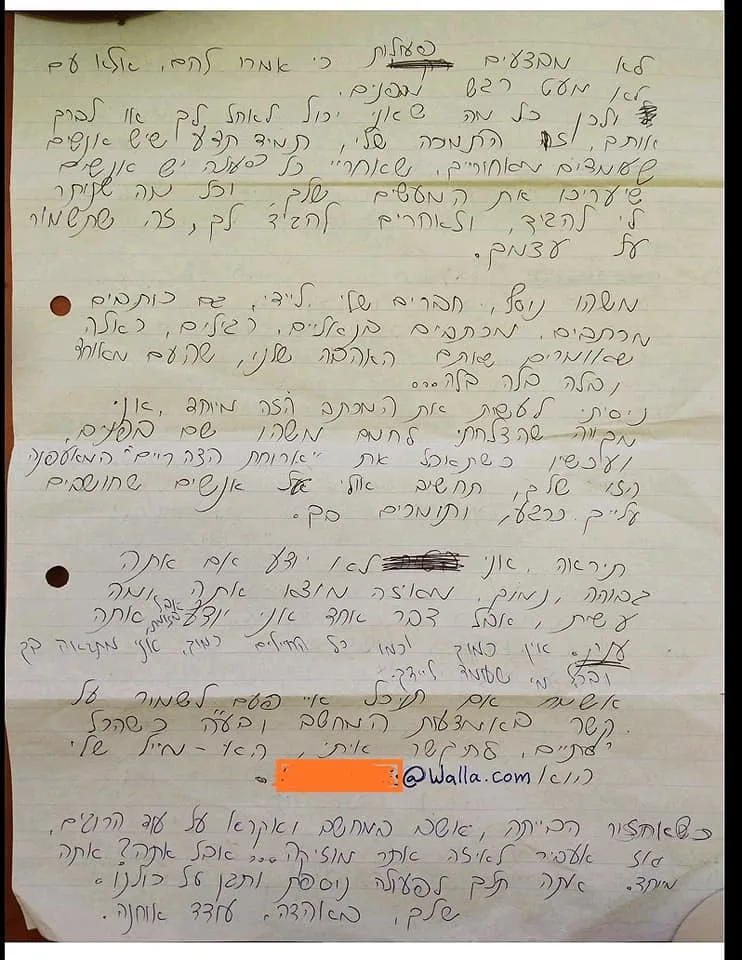 לא מבצעים פעולות כי אמרו להם, אלא עם
לא מעט רגש מבפנים.
ולכן כל מה שאני יכול לאחל לך או לברך
אותם, זה התמיכה שלי, תמיד תדע שיש אנשים
שעומדים מאחוריים, שאחריי כל פעולה יש אנשים
שיעריכו את המעשים שלך. וכל מה שנותר
לי להגיד, ולאחרים להגיד לך, זה שתשמור
על עצמך.
משהו נוסף, חברים שלי לידי, גם כותבים
מכתבים. מכתבים בנאליים, רגילים, כאלה
שאומרים שאתם האהבה שלנו, שהעם מאוחד
ובלה בלה בלה...
ניסיתי לעשות את המכתב הזה מיוחד, אני
מקווה שהצלחתי לחמם משהו שם בפנים,
ועכשיו כשתאכל את "ארוחת הצהריים" המאעפנה
הזו שלך, תחשוב אולי על אנשים שחושבים
עלייך כרגע, ותומכים בך.
תיראה, אני לא יודע אם אתה
גבוהה, נמוך, מאיזה מוצא אתה ומה
עשית, אבל דבר אחד אני יודע אתה
ענק. אין כמוך וכמו כל החיילים כמוך, אני מתגאה בך
ובכל מי שעומד לידך.
אשמח אם תוכל איי פעם לשמור על
קשר באמצעות המחשב ובע"ה כשהכל
יסתיים, תתקשר איתי, האי-מייל שלי
הוא @walla.com.
כשאחזור הבייתה, אשב במחשב ואקרא על עוד הרוגים,
ואז אעביר לאיזה אתר מוזיקה... אבל אתה? אתה
מיוחד. אתה תלך לפעולה נוספת ותגן על כולנו.
שלך, באהבה, עודד אוחנה.